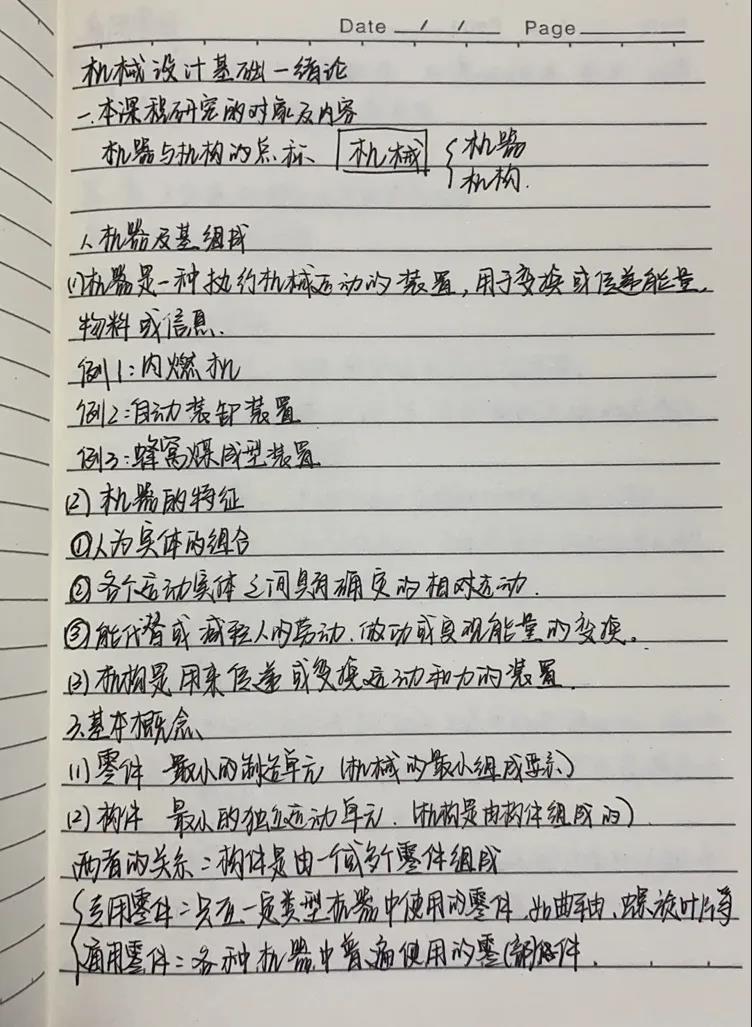 Date / / Page
机械设计基础一绪论
一.本课程研究的对象及内容
机器与机构的总称 机械 { 机器
机构.
1.机器及其组成
(1)机器是一种执行机械运动的装置,用于变换或传递能量,
物料或信息.
例1:内燃机
例2:自动装卸装置
例3:蜂窝煤成型装置
(2)机器的特征
①人为实体的组合
②各个运动实体之间具有确定的相对运动.
③能代替或减轻人的劳动.做功或实现能量的变换。
(3)机构是用来传递或变换运动和力的装置.
3.基本概念
(1)零件 最小的制造单元(机械的最小组成要素)
(2)构件 最小的独立运动单元.(机构是由构件组成的)
两者的关系:构件是由一个或多个零件组成
专用零件:只在一定类型机器中使用的零件.如曲轴、螺旋叶片等
通用零件:各种机器中普遍使用的零(部)件.